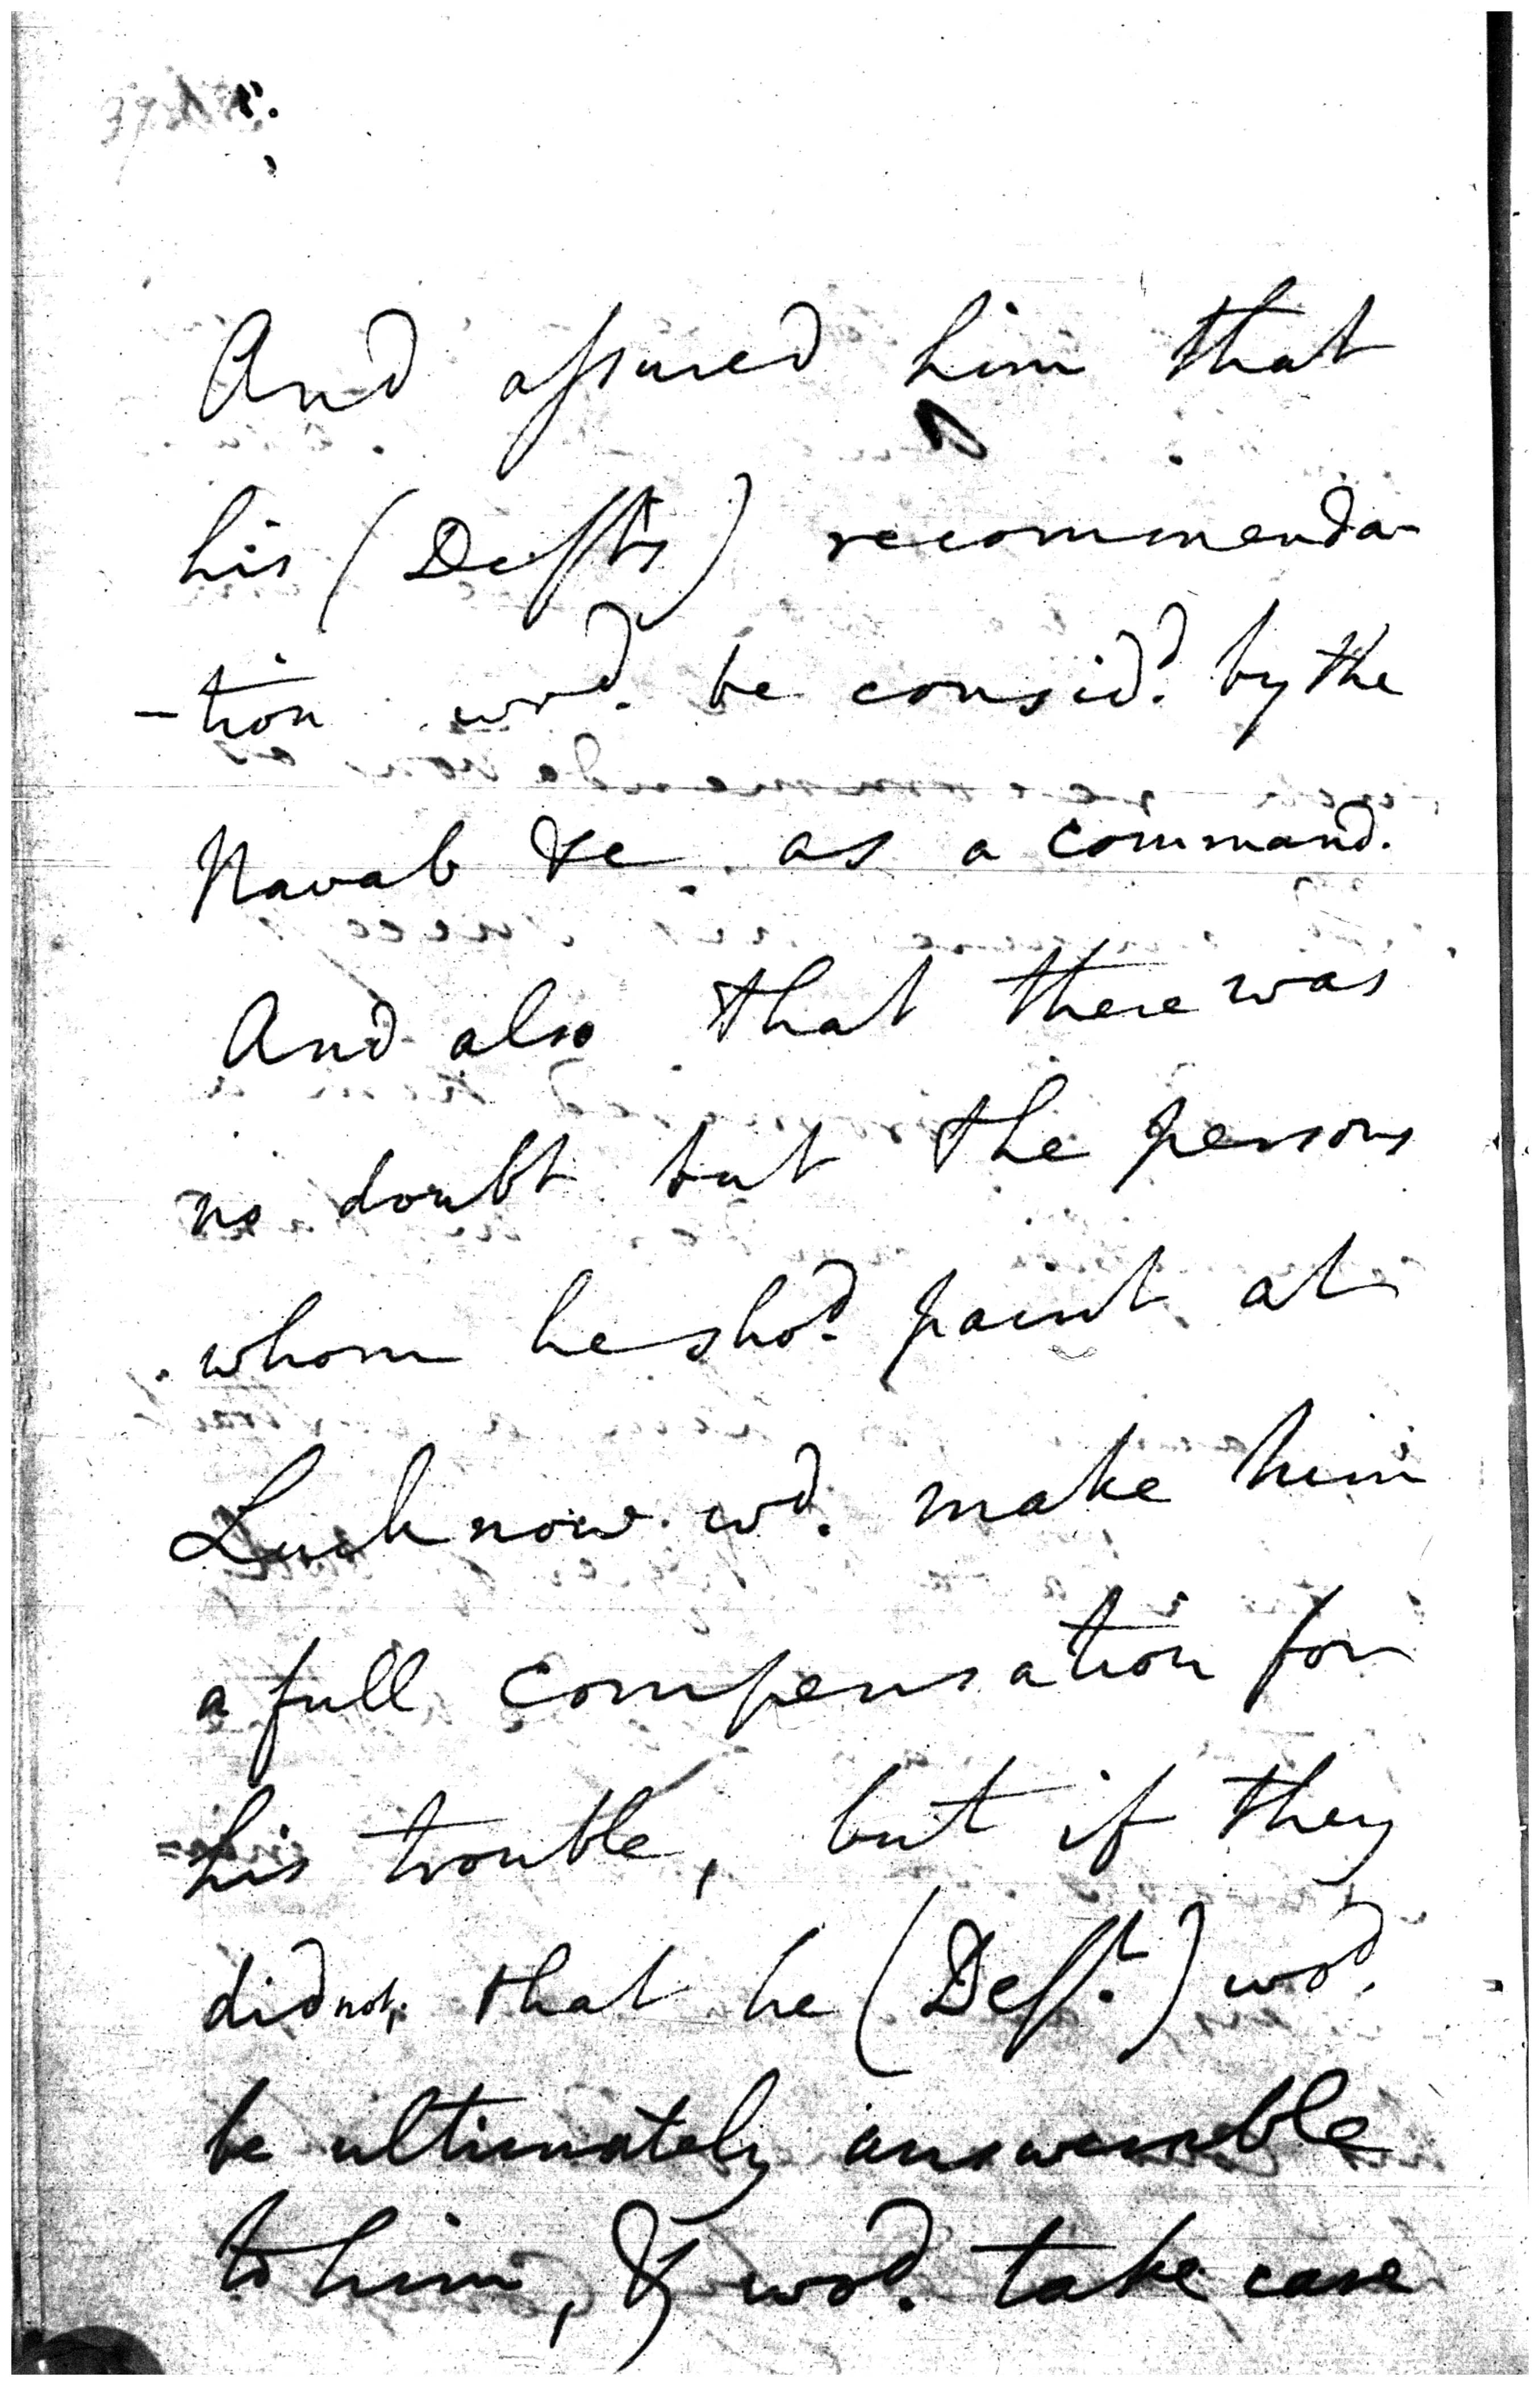 And assured him that
his (Defts) recommenda-
-tion wod. be considd. by the
Navab &c as a command.
And also that there was
no doubt but the persons
whom he shod. paint at
Lucknow wd. make him
a full compensation for
his trouble, but if they
did not, that he (Deft.) wod.
be ultimately answerable
to him, & wod. take care